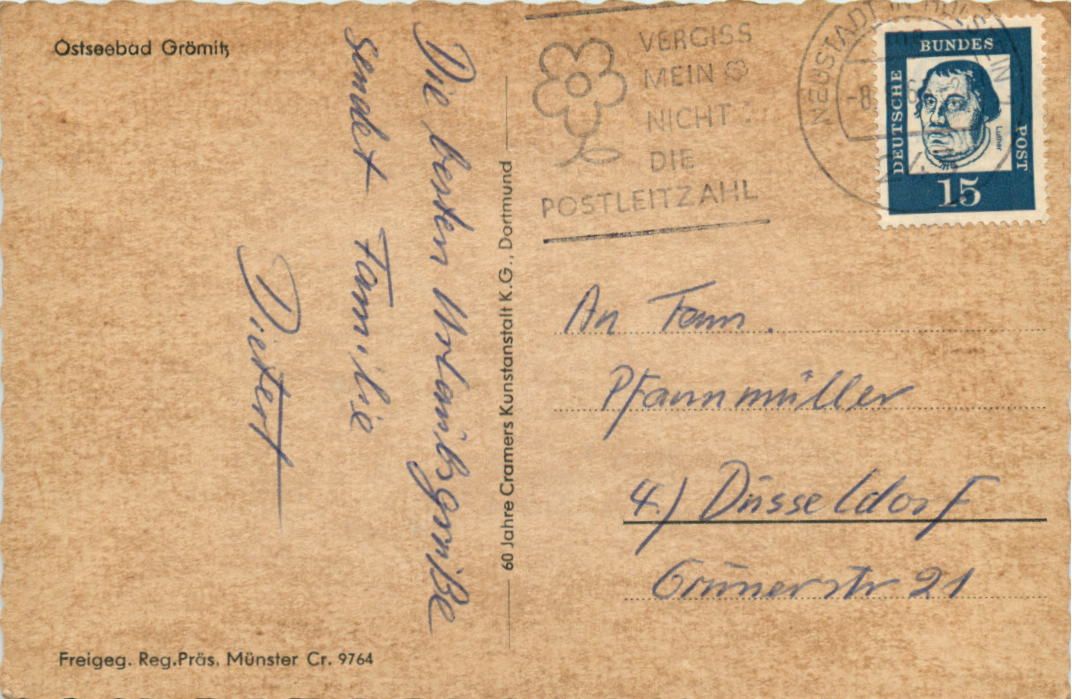 Ostseebad Grömitz
Die besten Urlaubsgrüße
sendet Familie
Dietert
Freigeg. Reg.Präs. Münster Cr. 9764
60 Jahre Cramers Kunstanstalt K.G., Dortmund
VERGISS
MEIN
NICHT
DIE
POSTLEITZAHL
NEUSTADT IN HOLSTEIN
-8.
DEUTSCHE
BUNDES
POST
Luther
15
An Fam.
Pfannmüller
4.) Düsseldorf
Grunerstr 21